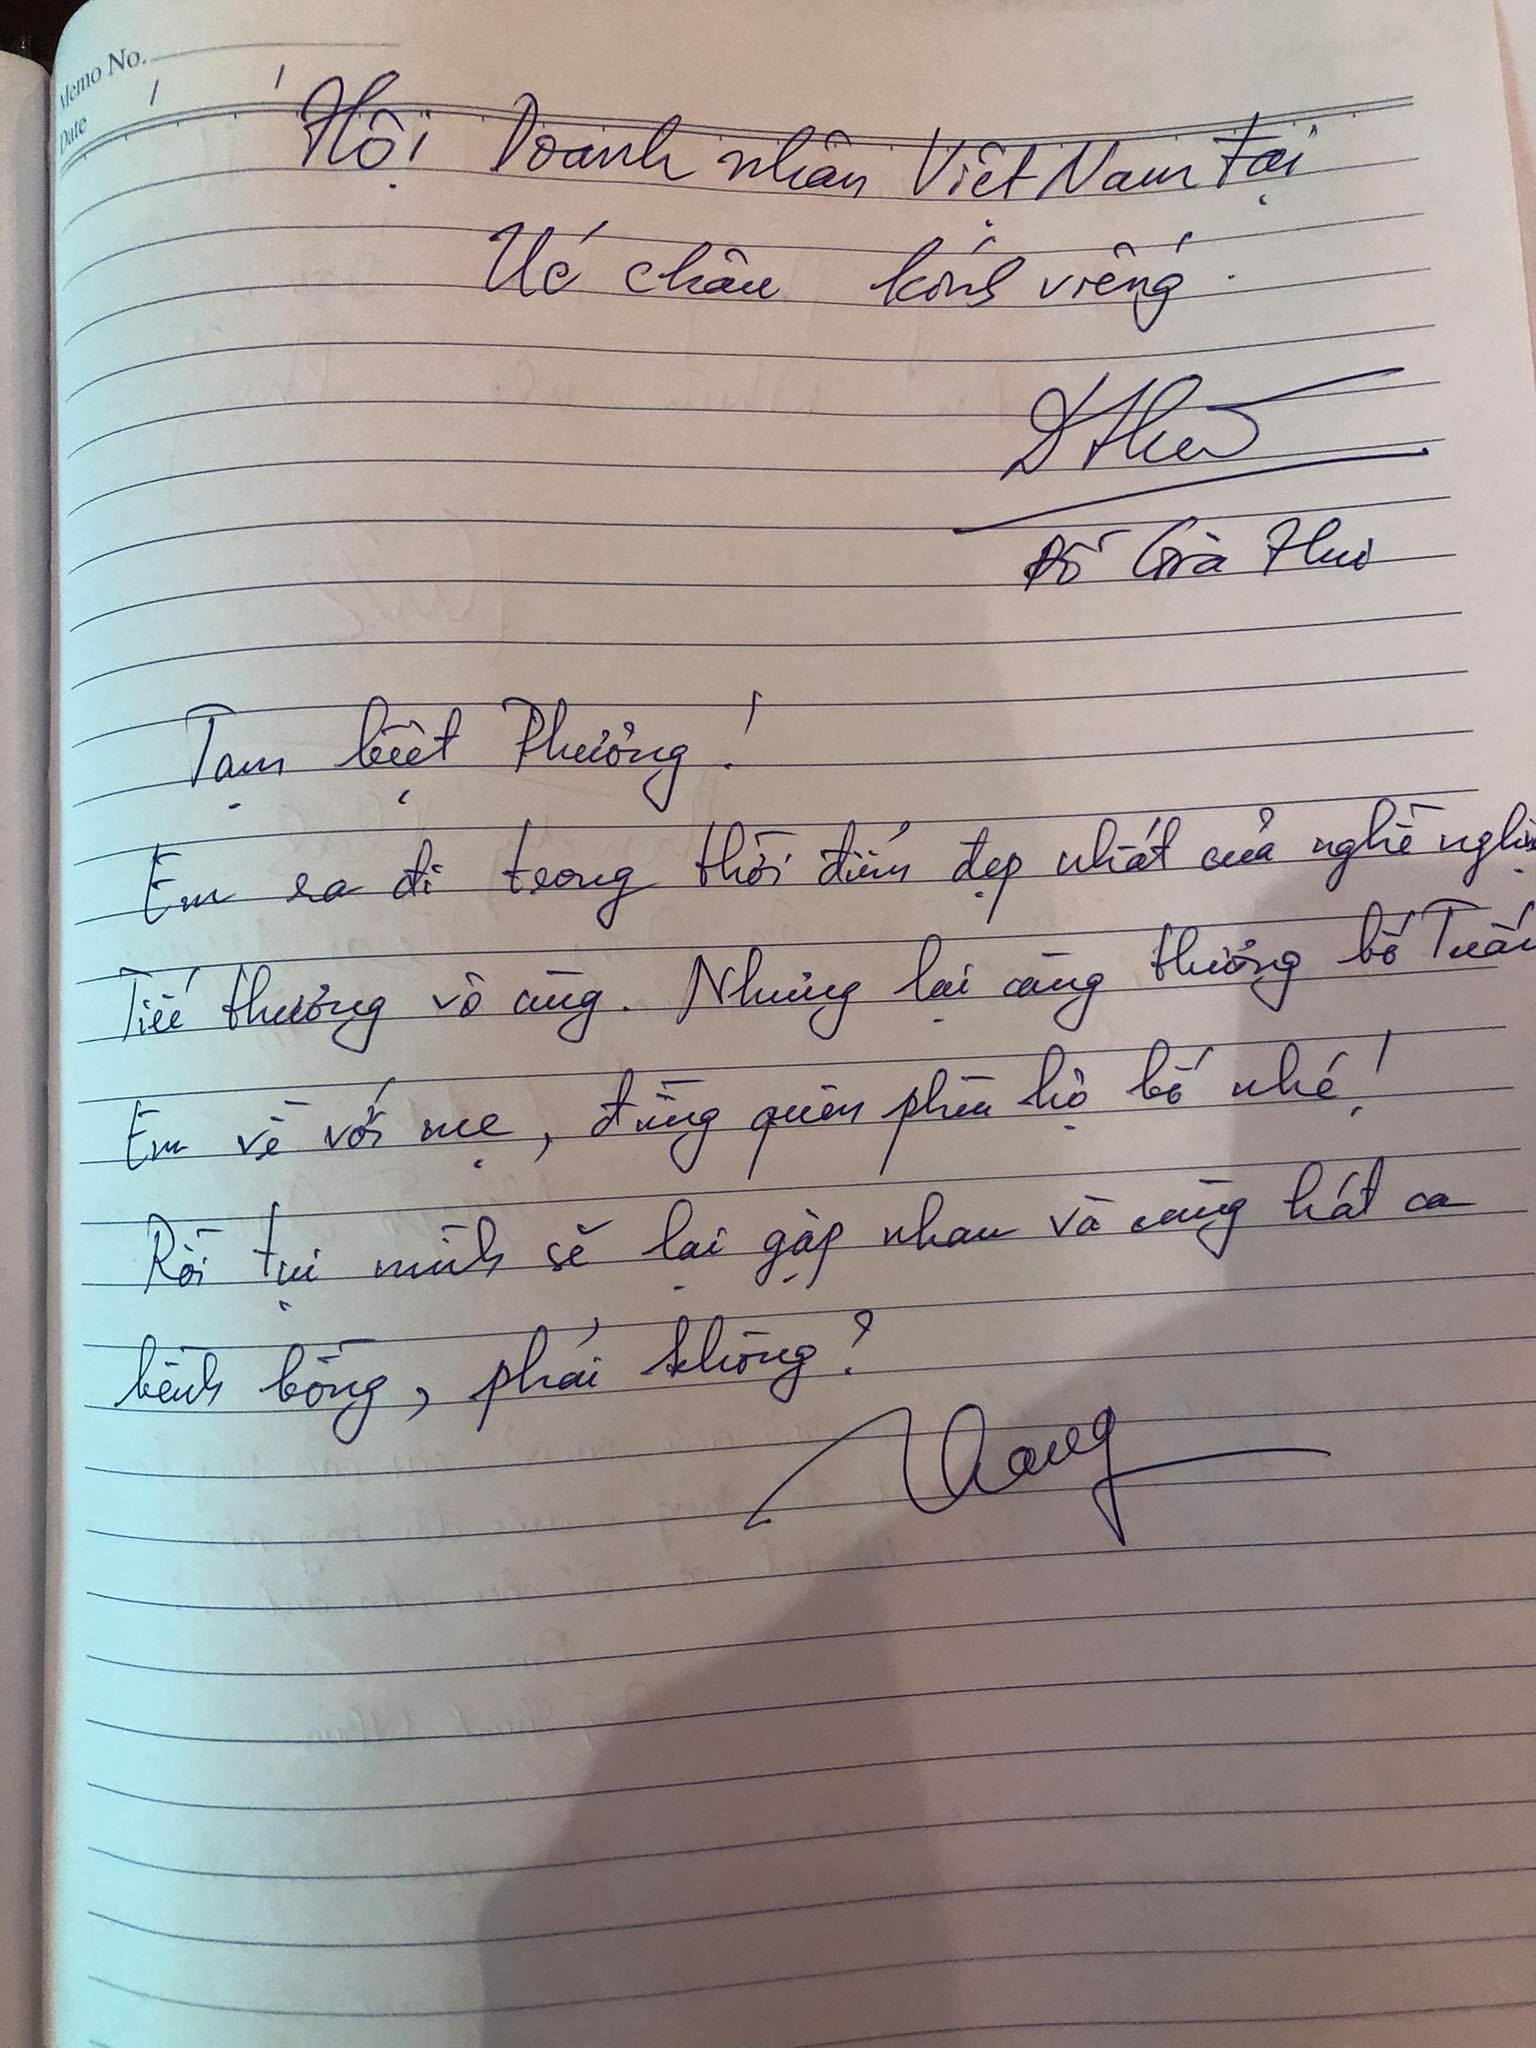 Memo No.
Date / /
Hội Doanh nhân Việt Nam tại
Úc châu kính viếng.
Đỗ Gia Thư
Tạm biệt Phương!
Em ra đi trong thời điểm đẹp nhất của nghề nghiệ
Tiếc thương vô cùng. Nhưng lại càng thương bố Tuấn
Em về với mẹ, đừng quên phù hộ bố nhé!
Rồi tụi mình sẽ lại gặp nhau và cùng hát ca
bềnh bồng, phải không?